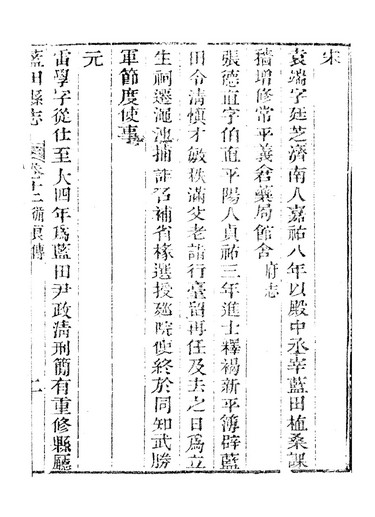 宋
袁端字廷芝濟南人嘉祐八年以殿中丞宰藍田植桑課
穡增修常平義倉藥局館舍府志
張德直字伯直平陽人貞祐三年進士釋褐新平簿辟藍
田令清慎才敏秩滿父老請行臺留再任及去之日爲立
生祠遷澠池捕評召補省掾選授 院使終於同知武勝
軍節度使事
元
雷學字從仕至大四年爲藍田尹政清刑簡有重修縣廳
藍田縣志 卷十二 傳 二